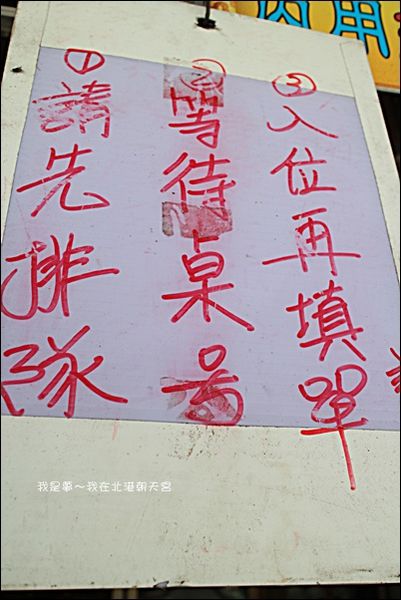 ①請先排隊
②等待桌号
③入位再填單
內用
我是夢～我在北港朝天宮